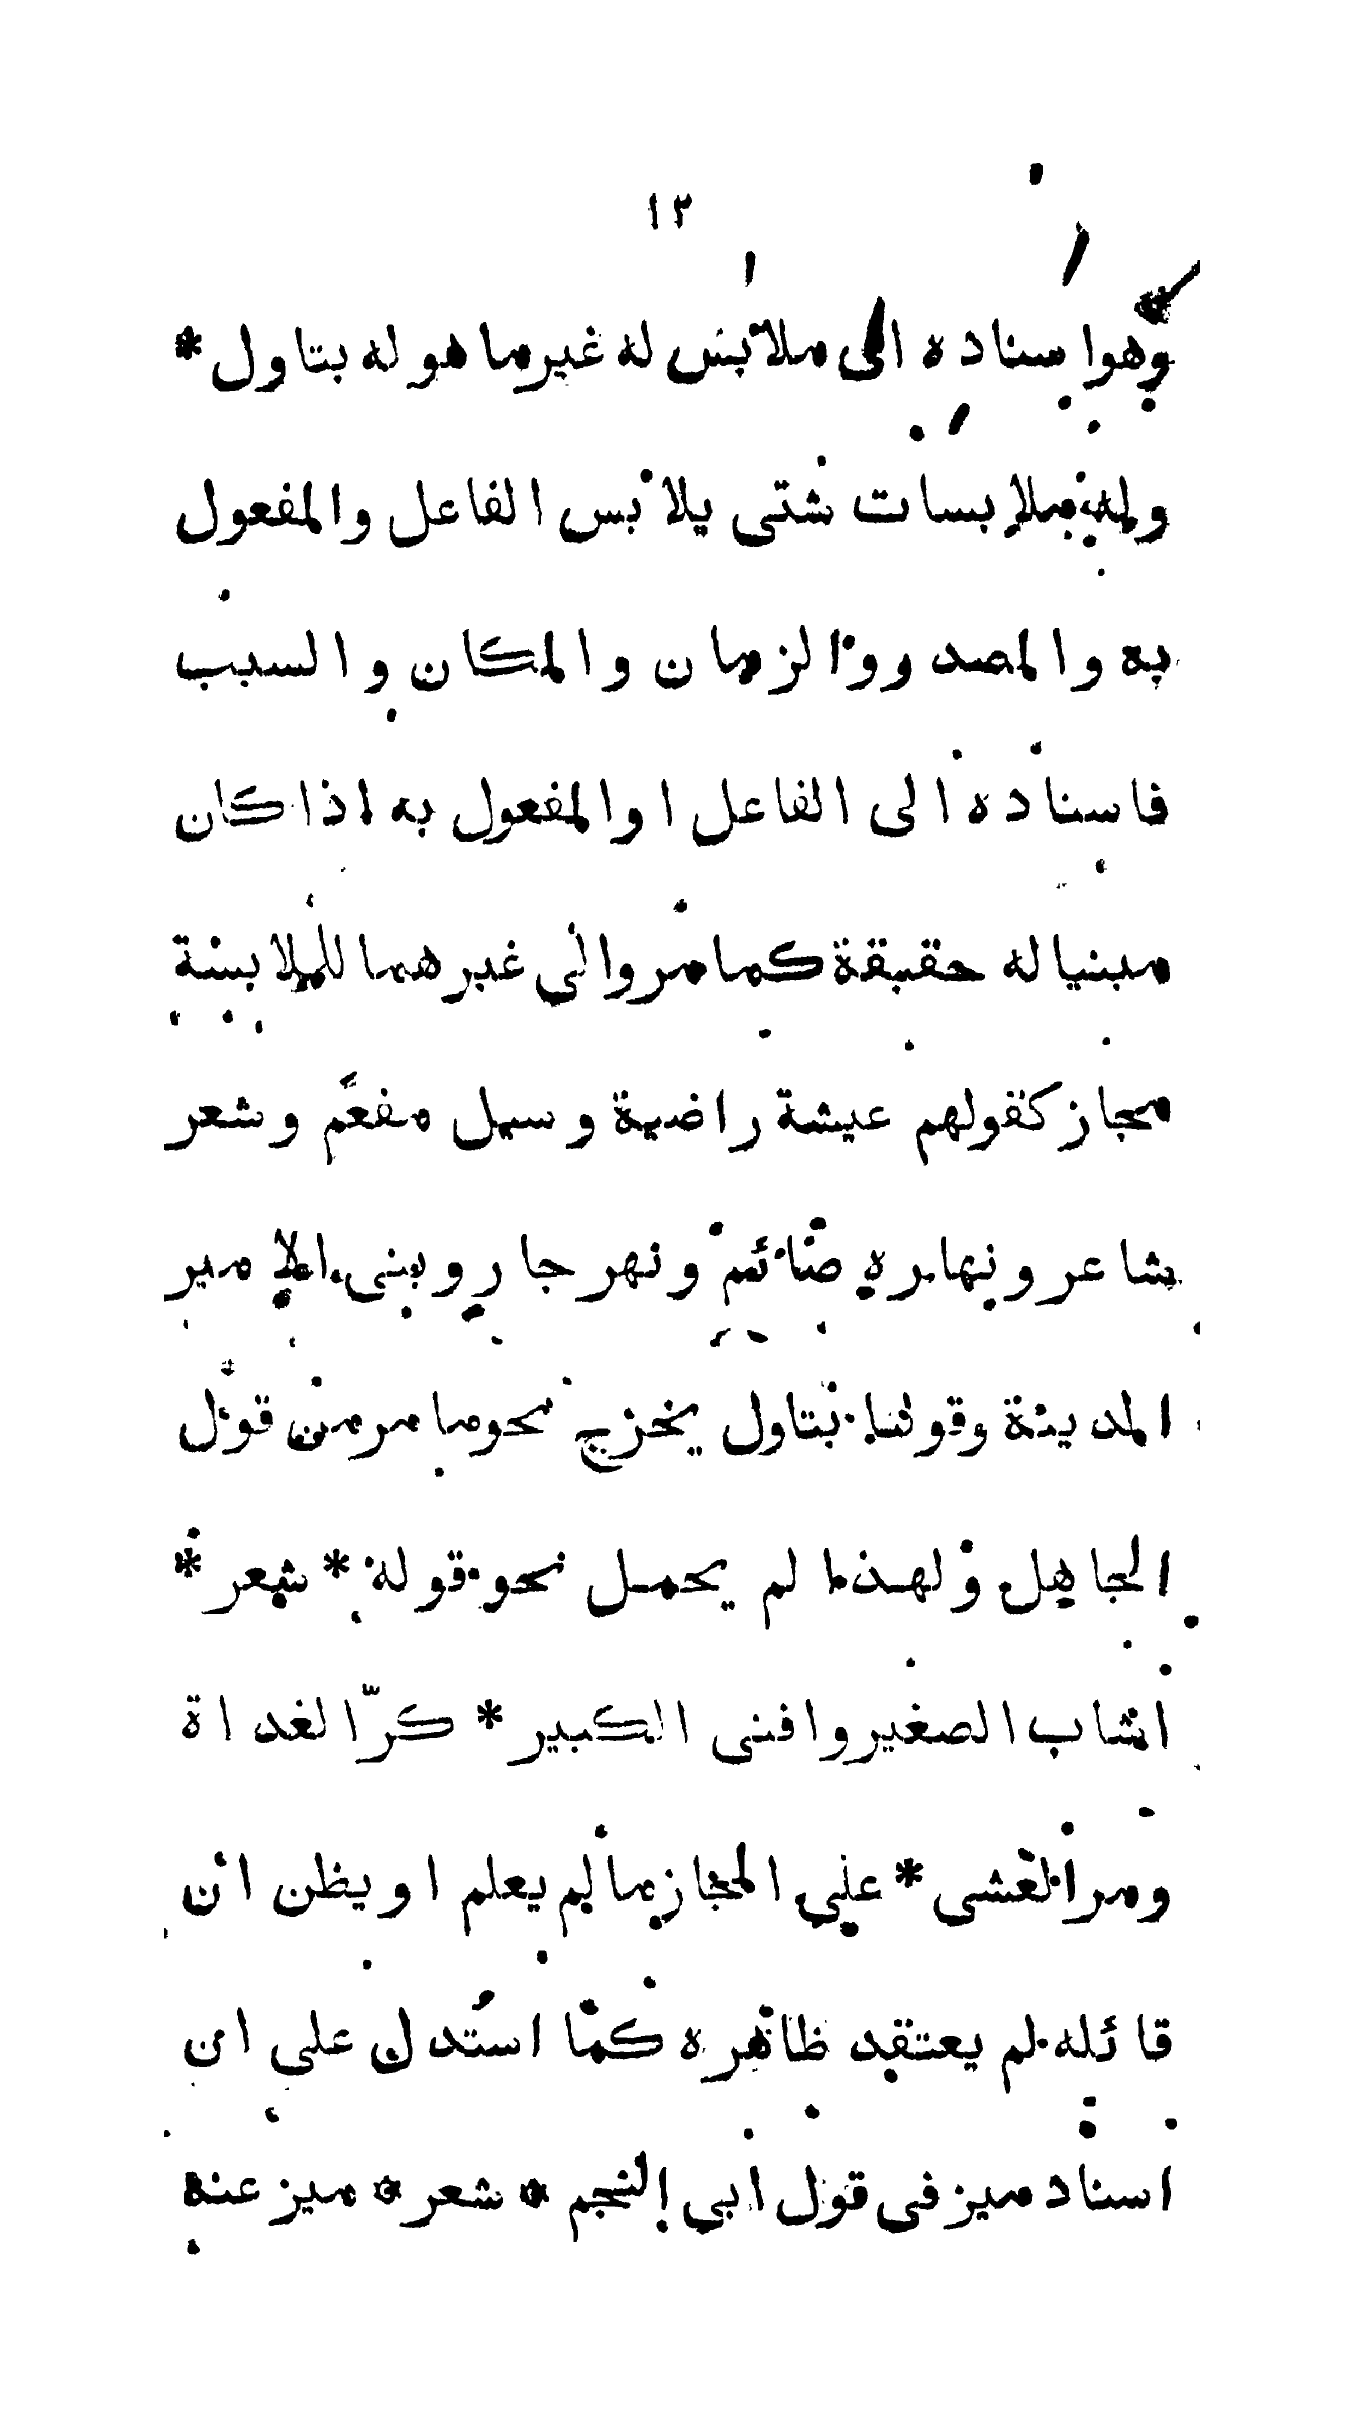 ١٢
وهو اسناده الى ملابس له غير ما هو له بتاول *
وله ملابسات شتى يلابس الفاعل والمفعول
به والمصدر والزمان والمكان والسبب
فاسناده الى الفاعل او المفعول به اذا كان
مبنيا له حقيقة كما مر والى غيرهما للملابسة
مجاز كقولهم عيشة راضية وسيل مفعَم وشعر
شاعر ونهاره صائم ونهر جار وبنى الامير
المدينة وقولنا بتاول يخرج نحو ما مر من قول
الجاهل ولهذا لم يحمل نحو قوله * شعر *
اشاب الصغير وافنى الكبير * كرّ الغداة
ومر العشى * على المجاز ما لم يعلم او يظن ان
قائله لم يعتقد ظاهره كما استُدل على ان
اسناد ميز فى قول ابى النجم * شعر * ميز عنه